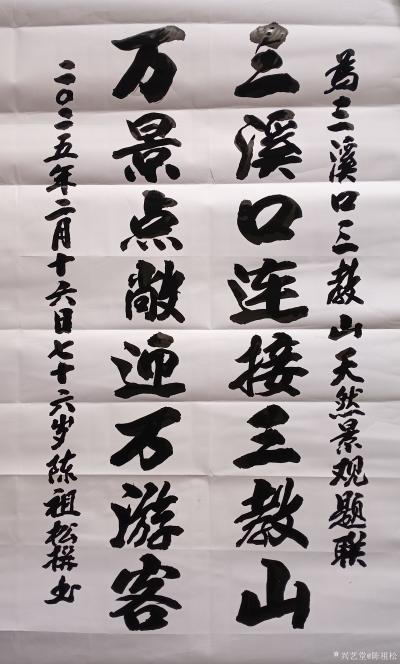 为三溪口三教山天然景观题联
三溪口连接三教山
万景点敞迎万游客
二〇二五年二月十六日七十六岁陈祖松撰书
兴艺堂@陈祖松